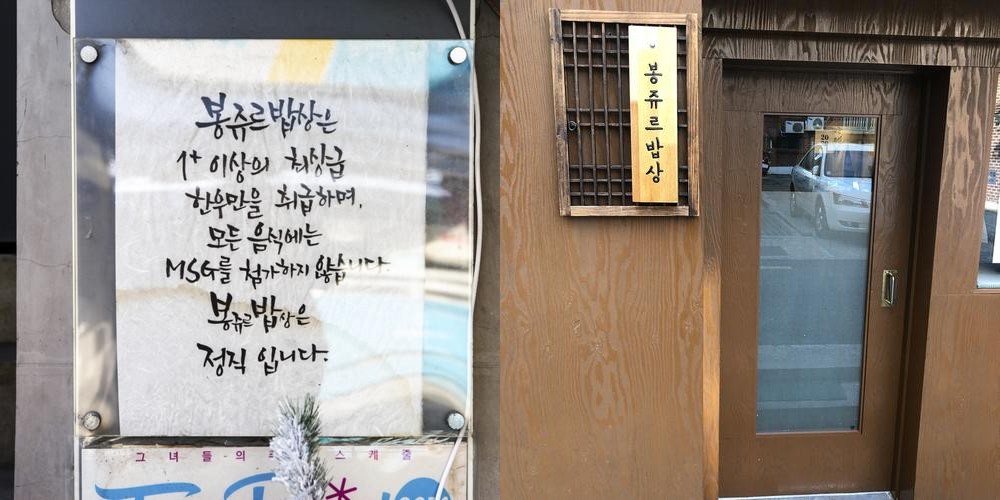 봉쥬르밥상은
1+ 이상의 최상급
한우만을 취급하며,
모든 음식에는
MSG를 첨가하지 않습니다.
봉쥬르밥상은
정직 입니다.
그녀들의 스케줄
봉쥬르밥상